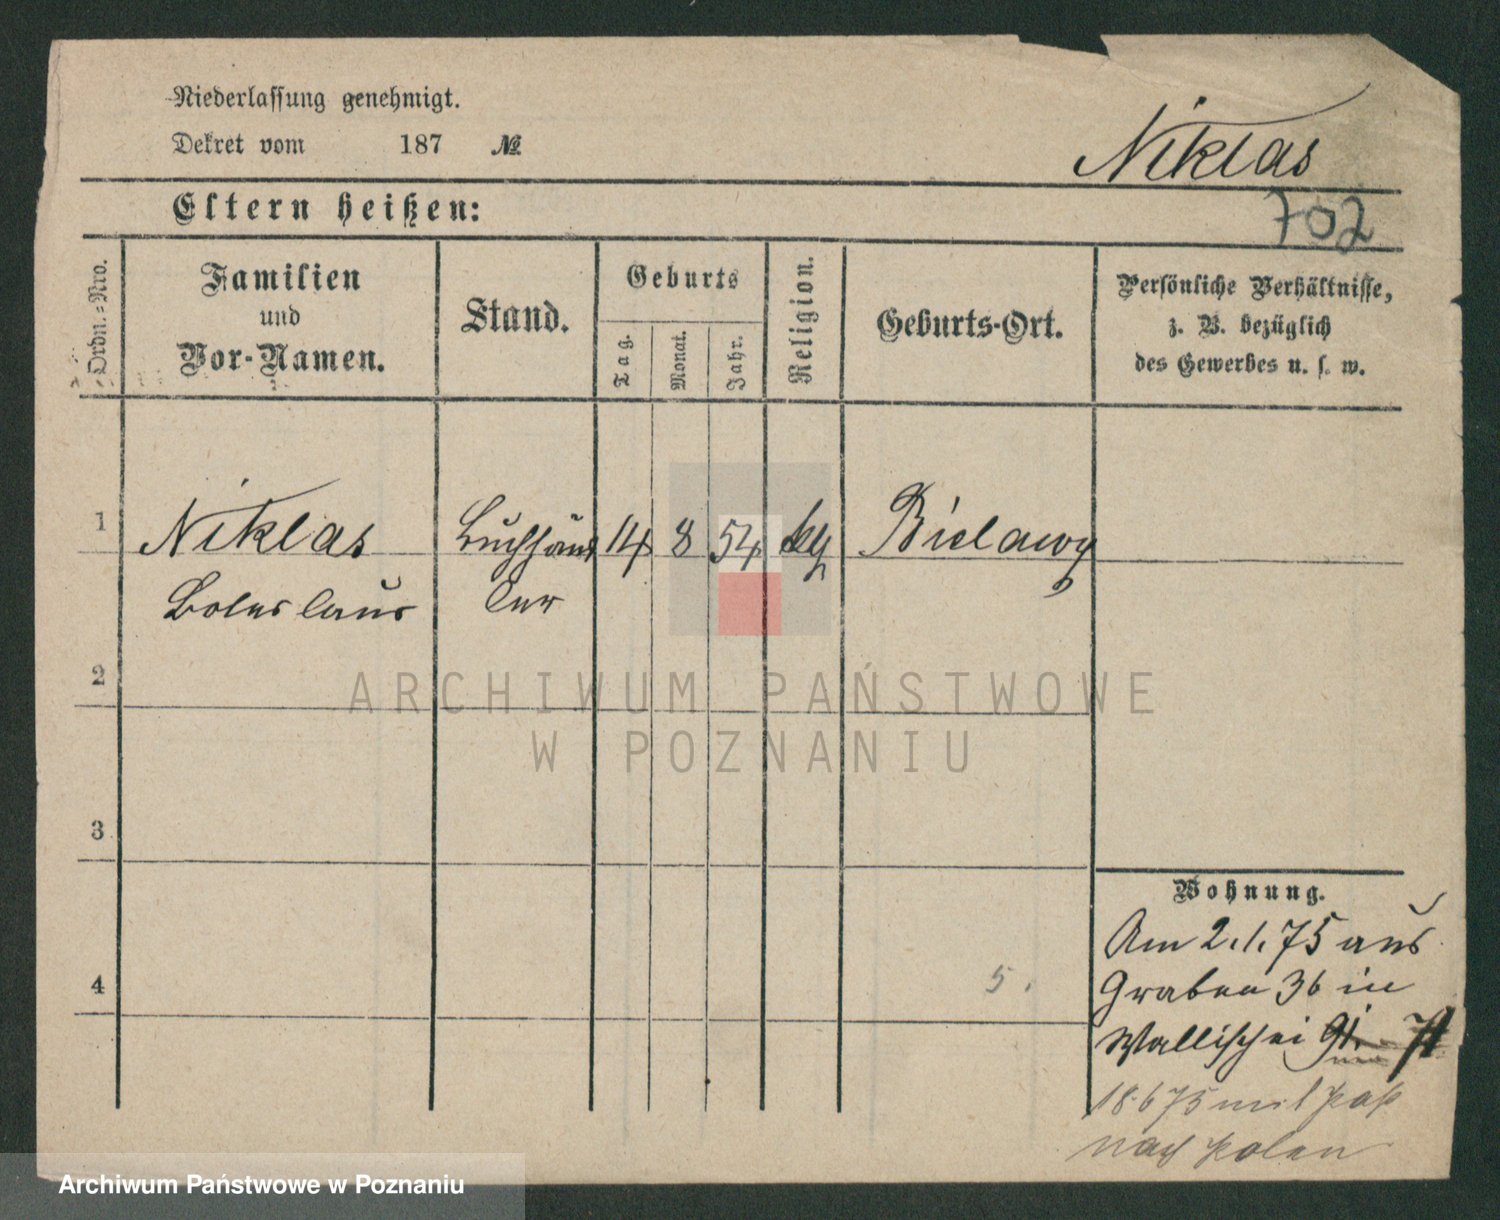 Niederlassung genehmigt.
Dekret vom 187 №
Niklas
Eltern heißen:
702
Ordn.-Nro.
Familien
und
Vor-Namen.
Stand.
Geburts
Tag.
Monat.
Jahr.
Religion.
Geburts-Ort.
Persönliche Verhältnisse,
z. B. bezüglich
des Gewerbes u. s. w.
1 Niklas Buchhänd 14 8 54 Bielawy
Boleslaus ler
2
3
4
5.
Wohnung.
Am 2.1.75 aus
Graben 36 in
Wallischei
18 6 75 mit Paß
nach Polen
ARCHIWUM PAŃSTWOWE
W POZNANIU
Archiwum Państwowe w Poznaniu